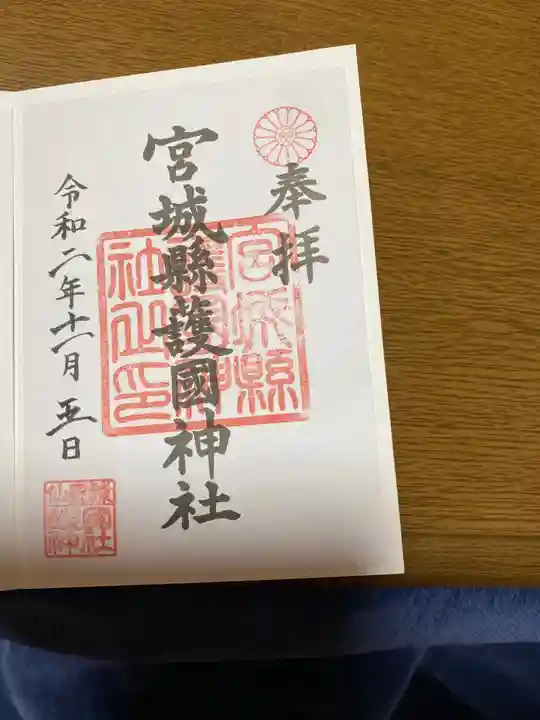 奉拝
宮城縣護國神社
宮城縣護國神社之印
令和二年十一月五日